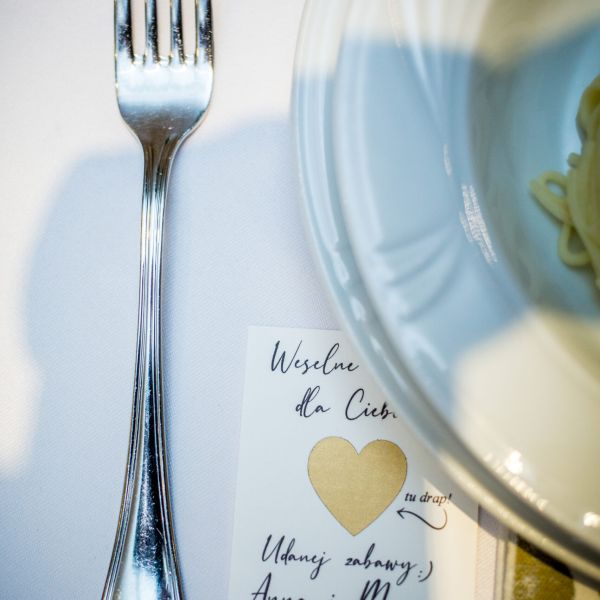 Weselne
dla
tu drap!
Udanej zabawy:)
Anna i